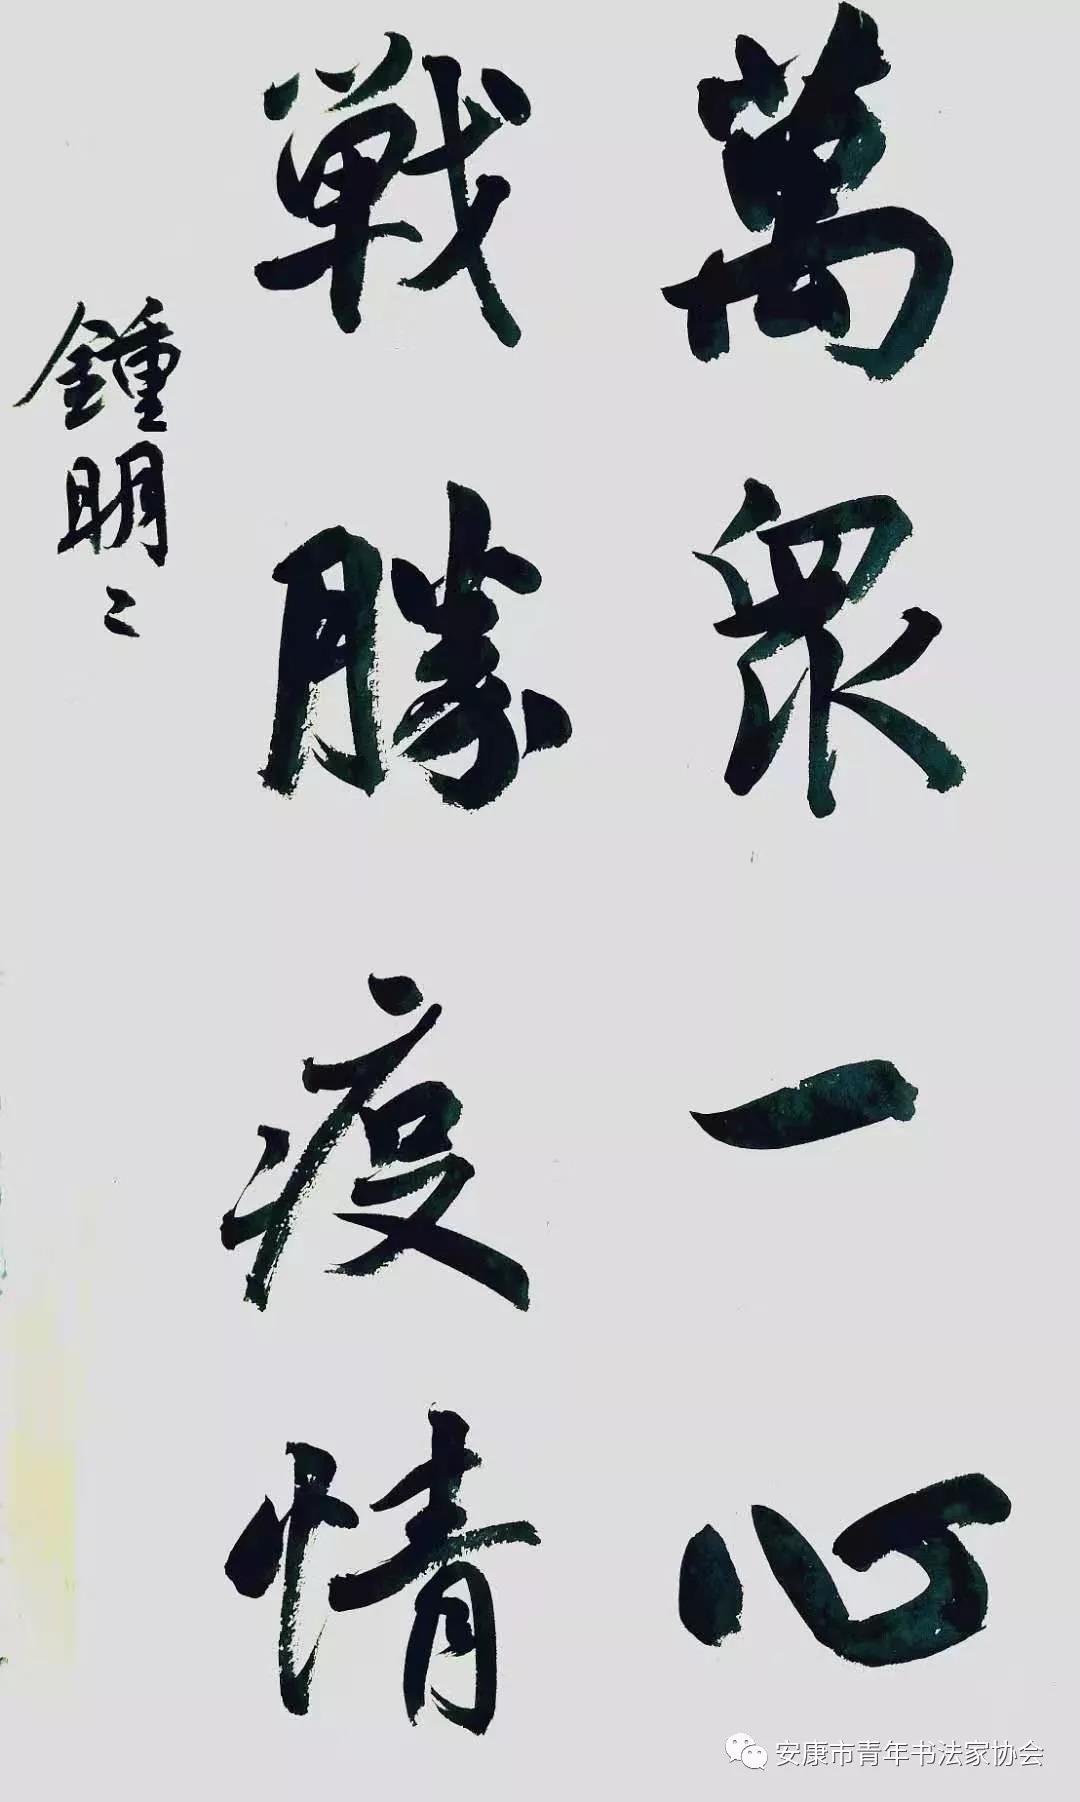 萬眾一心
戰勝疫情
鍾明明
安康市青年书法家协会